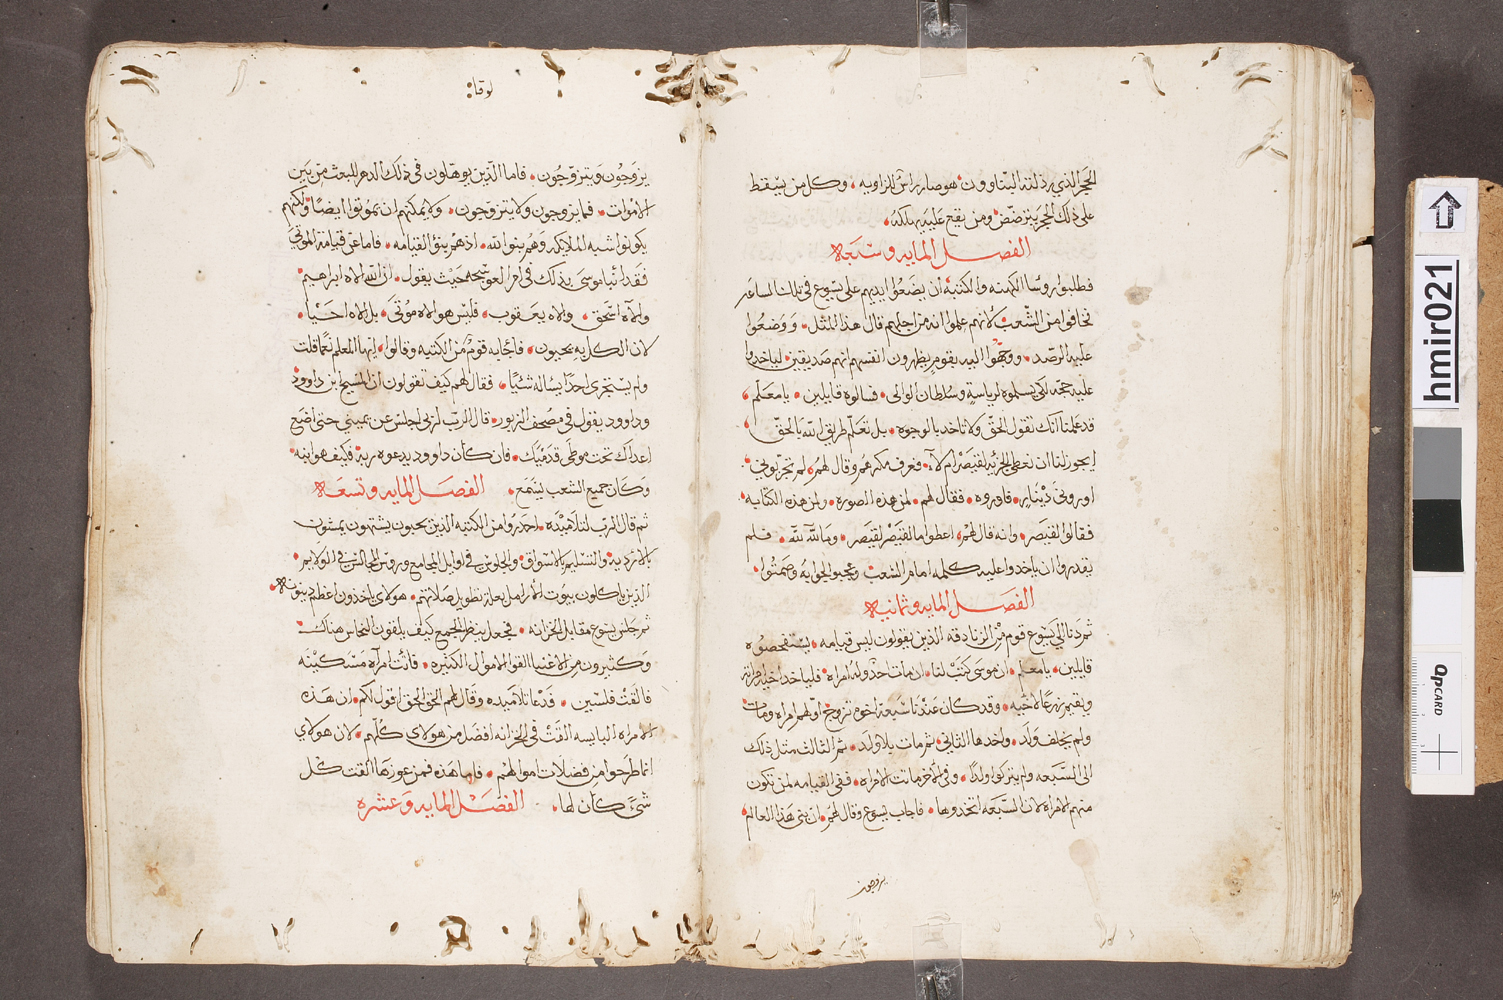 الحجر الذي رذلته البناوون هو صار راس الزاويه وكل من يسقط
على ذلك الحجر يترضض ومن يقع عليه يهلكه
الفصل المايه وسبعه
فطلبوا روسا الكهنه والكتبه ان يضعوا ايديهم على يسوع في تلك الساعه
فخافوا من الشعب لانهم علموا انه من اجلهم قال هذا المثل ووضعوا
عليه الرصد ووجهوا اليه بقوم يظهرون انفسهم انهم صديقين لياخدوا
عليه حجه لكي يسلموه لرياسة وسلطان الوالي فسالوه قايلين يا معلم
قد علمنا انك تقول الحق ولا تاخد بالوجوه بل تعلم طريق الله بالحق
ايجوز لنا ان نعطي الجزيه لقيصر ام لا فعرف مكرهم وقال لهم لم تجربوني
اوروني دينار فاوروه فقال لهم لمن هذه الصوره ولمن هذه الكتابه
فقالوا لقيصر وانه قال لهم اعطوا ما لقيصر لقيصر وما لله لله فلم
يقدروا ان ياخدوا عليه كلمه امام الشعب وعجبوا لجوابه وصمتوا
الفصل المايه وثمانيه
ثم دنا الي يسوع قوم من الزنادقه الذين يقولون ليس قيامه يستفحصوه
قايلين يا معلم ان موسى كتب لنا ان مات احد وله امراه فلياخد اخيه امراته
ويقيم زرعا لاخيه وقد كان عندنا سبعة اخوه تزوج اولهم امراه ومات
ولم يخلف ولد واخدها الثاني ثم مات بلا ولد ثم الثالث مثل ذلك
الى السبعه ولم يتركوا ولدا وفي الاخر ماتت الامراه ففي القيامه لمن تكون
منهم الامراه لان السبعه اتخدوها فاجاب يسوع وقال لهم ان بني هذا العالم
يزوجون
لوقا
يزوجون ويتزوجون فاما الذين يوهلون في ذلك الدهر للبعث من بين
الاموات فما يزوجون ولا يتزوجون ولا يمكنهم ان يموتوا ايضا ولكنهم
يكونوا شبه الملايكه وهم بنوا الله اذ هم بنو القيامه فاما عن قيامة الموتى
فقد انبا موسى بذلك في امر العوسجه حيث يقول ان الله الاه ابراهيم
والاه اسحق والاه يعقوب فليس هو الاه موتى بل الاه احيا
لان الكل به يحيون فاجابه قوم من الكتبه وقالوا ايها المعلم نعما قلت
ولم يستجرى احدا يساله شيا فقال لهم كيف تقولون ان المسيح ابن داوود
وداوود يقول في مصحف الزبور قال الرب لربي اجلس عن يميني حتى اضع
اعداك تحت موطى قدميك فان كان داوود يدعوه ربه فكيف هو ابنه
وكان جميع الشعب يستمع الفصل المايه وتسعه
ثم قال الرب لتلاميده احدروا من الكتبه الذين يحبون يشتهون يمشون
بالارديه والتسليم بالاسواق والجلوس في اوايل المجامع وروس المجالس في الولايم
الذين ياكلون بيوت الارامل بعلة تطويل صلاتهم هولاي ياخذون اعظم دينونه
ثم جلس يسوع مقابل الخزانه فجعل ينظر الجمع كيف يلقون النحاس هناك
وكثيرون من الاغنيا القوا الاموال الكثيره فاتت امرآه مسكينه
فالقت فلسين فدعا تلاميده وقال لهم الحق الحق اقول لكم ان هذه
الامراه البايسه القت في الخزانه افضل من هولاى كلهم لان هولاي
انما طرحوا من فضلات اموالهم فاما هذه فمن عوزها القت كل
شي كان لها الفصل المايه وعشره